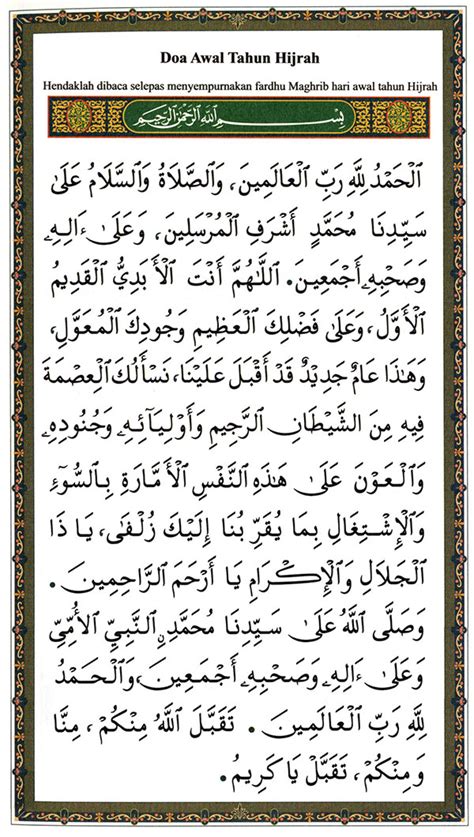 Doa Awal Tahun Hijrah
Hendaklah dibaca selepas menyempurnakan fardhu Maghrib hari awal tahun Hijrah
بِسْمِ اللَّهِ الرَّحْمَٰنِ الرَّحِيمِ
اَلْحَمْدُ لِلَّهِ رَبِّ الْعَالَمِينَ، وَالصَّلَاةُ وَالسَّلَامُ عَلَىٰ
سَيِّدِنَا مُحَمَّدٍ أَشْرَفِ الْمُرْسَلِينَ، وَعَلَىٰ ءَالِهِۦ
وَصَحْبِهِۦ أَجْمَعِينَ. اَللَّهُمَّ أَنْتَ الْأَبَدِيُّ الْقَدِيمُ
الْأَوَّلُ، وَعَلَىٰ فَضْلِكَ الْعَظِيمِ وَجُودِكَ الْمُعَوَّلِ،
وَهَٰذَا عَامٌ جَدِيدٌ قَدْ أَقْبَلَ عَلَيْنَا، نَسْأَلُكَ الْعِصْمَةَ
فِيهِ مِنَ الشَّيْطَانِ الرَّجِيمِ وَأَوْلِيَآئِهِۦ وَجُنُودِهِۦ
وَالْعَوْنَ عَلَىٰ هَٰذِهِ النَّفْسِ الْأَمَّارَةِ بِالسُّوٓءِ
وَالْإِشْتِغَالِ بِمَا يُقَرِّبُنَا إِلَيْكَ زُلْفَىٰ، يَا ذَا
الْجَلَالِ وَالْإِكْرَامِ يَا أَرْحَمَ الرَّاحِمِينَ.
وَصَلَّى اللَّهُ عَلَىٰ سَيِّدِنَا مُحَمَّدٍ النَّبِيِّ الْأُمِّيِّ
وَعَلَىٰ ءَالِهِۦ وَصَحْبِهِۦ أَجْمَعِينَ، وَالْحَمْدُ
لِلَّهِ رَبِّ الْعَالَمِينَ. تَقَبَّلَ اللَّهُ مِنْكُمْ، مِنَّا
وَمِنْكُمْ، تَقَبَّلْ يَا كَرِيمُ.